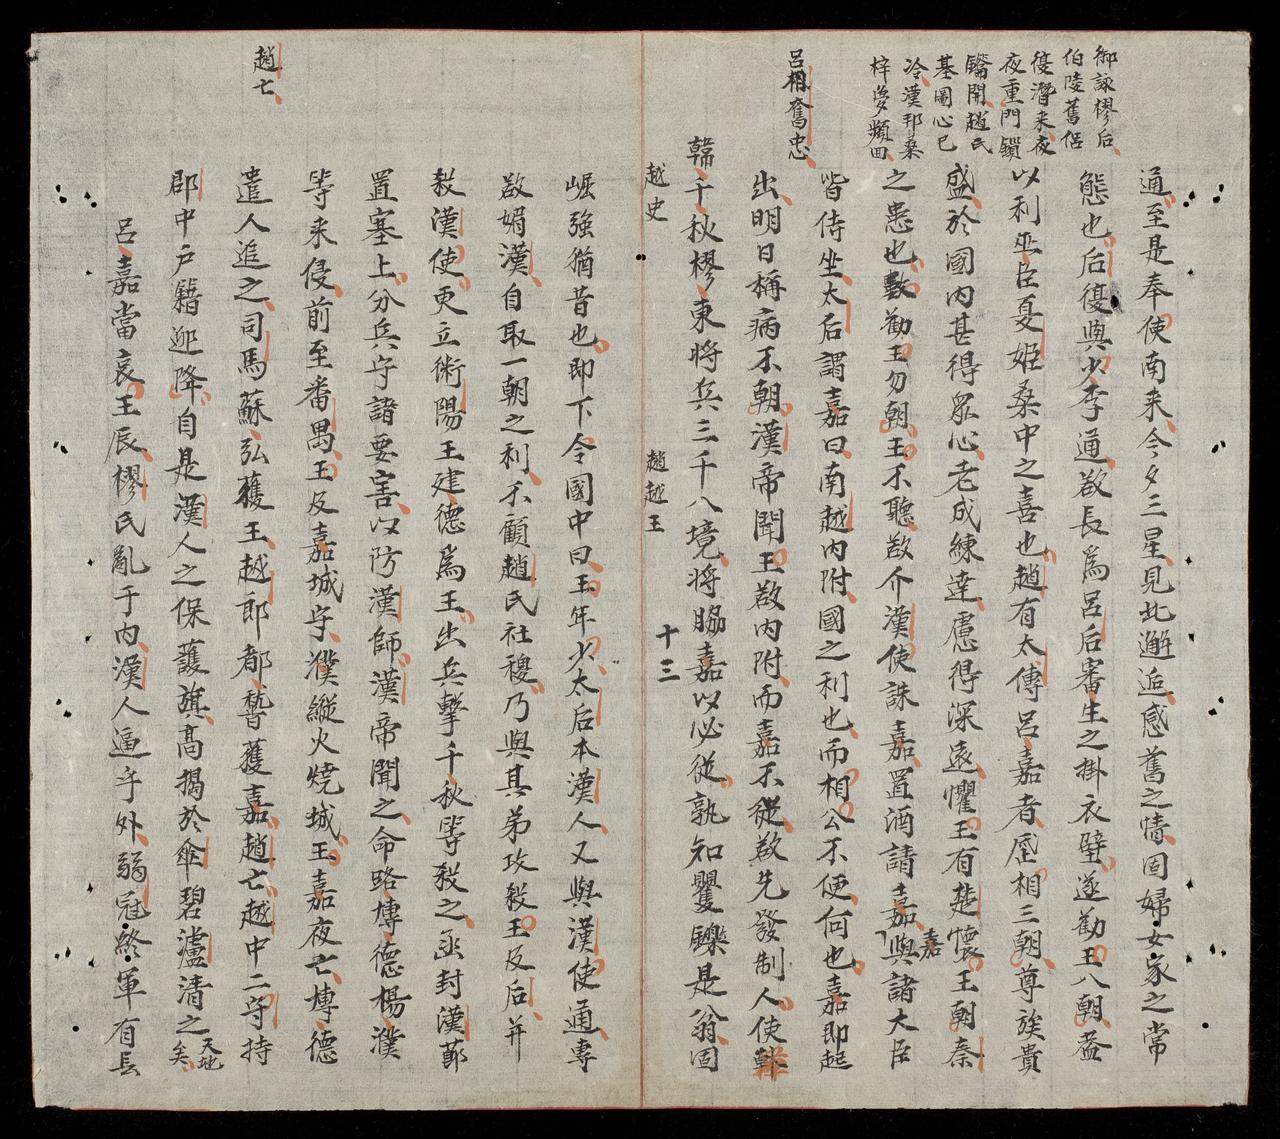 御詠樛后
伯陵舊侶
復潛来夜
夜重門鎖
鑰開趙氏
基圖心已
冷漢邦桑
梓夢頻回
通至是奉使南来今夕三星見此邂逅感舊之情固婦女家之常
態也后復與少季通欲長為呂后審生之掛衣壁遂勸王入朝益
以利巫臣夏姬桑中之喜也趙有太傅呂嘉者歷相三朝尊族貴
盛於國内甚得眾心老成練達慮得深遠懼王有楚懷王朝秦
之患也數勸王勿朝王不聽欲介漢使誅嘉置酒請嘉與諸大臣
嘉
皆侍坐太后謂嘉曰南越内附國之利也而相公不便何也嘉即起
呂相奮忠
出明日稱病不朝漢帝聞王欲内附而嘉不從欲先發制人使韓
韓千秋樛東將兵二千入境將脇嘉以必從孰知矍鑠是翁固
越史
趙越王
十三
崛強猶昔也即下令國中曰王年少太后本漢人又與漢使通專
欲媚漢自取一朝之利不顧趙氏社稷乃與其弟攻殺王及后并
殺漢使更立術陽王建德為王出兵擊千秋等殺之函封漢節
置塞上分兵守諸要害以防漢師漢帝聞之命路博德楊濮
等来侵前至番禺王及嘉城守濮縱火燒城王嘉夜亡博德
遣人追之司馬蘇弘獲王越郎都暬獲嘉趙亡越中二守持
趙亡
郡中戶籍迎降自是漢人之保護旗高揭於傘碧瀘清之天地矣
呂嘉當哀王辰樛氏亂于内漢人逼乎外弱冠終軍有長